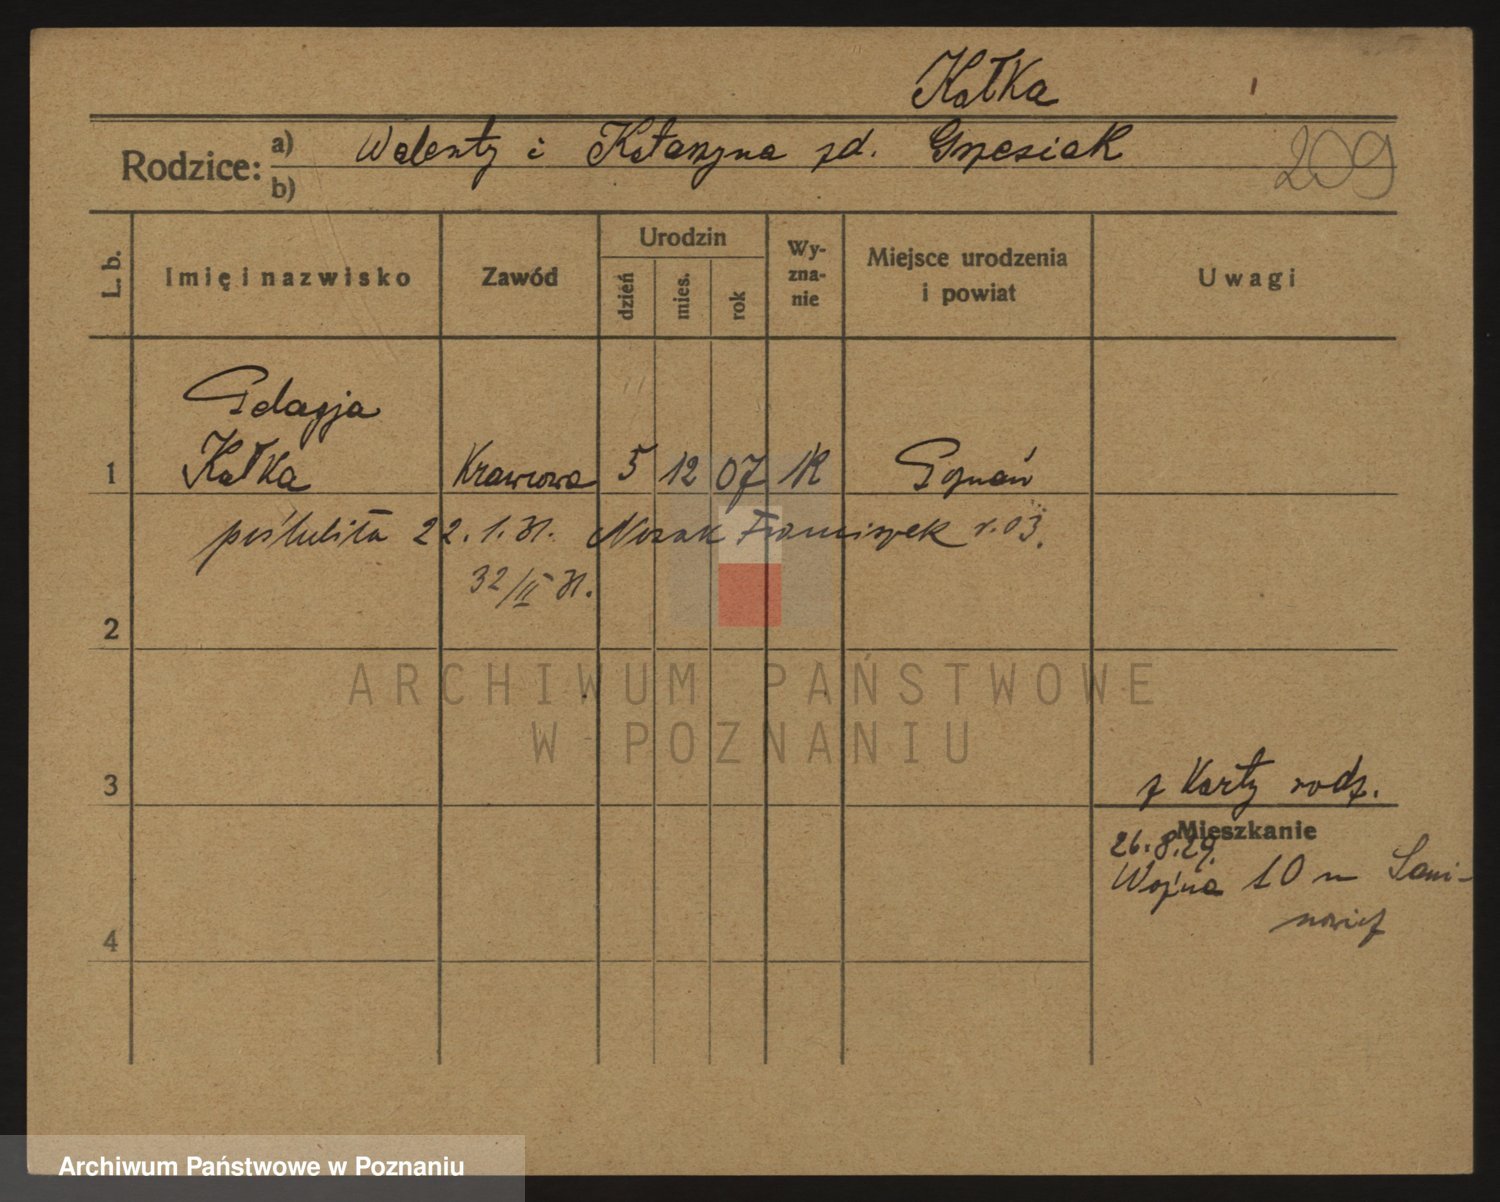 Kałka
Rodzice:
a) Walenty i Katarzyna zd. Grzesiak
b)
209
L. b.
Imię i nazwisko
Zawód
Urodzin
dzień
mies.
rok
Wy-
zna-
nie
Miejsce urodzenia
i powiat
Uwagi
Pelagja
1 Kałka Krawcowa 5 12 07 rk Poznań
poślubiła 22.1.31. Nozak Franciszek r. 03.
32/II 31.
2
ARCHIWUM PAŃSTWOWE
W POZNANIU
3
z Karty rodz.
Mieszkanie
26.8.29.
Woźna 10 m
4
Archiwum Państwowe w Poznaniu